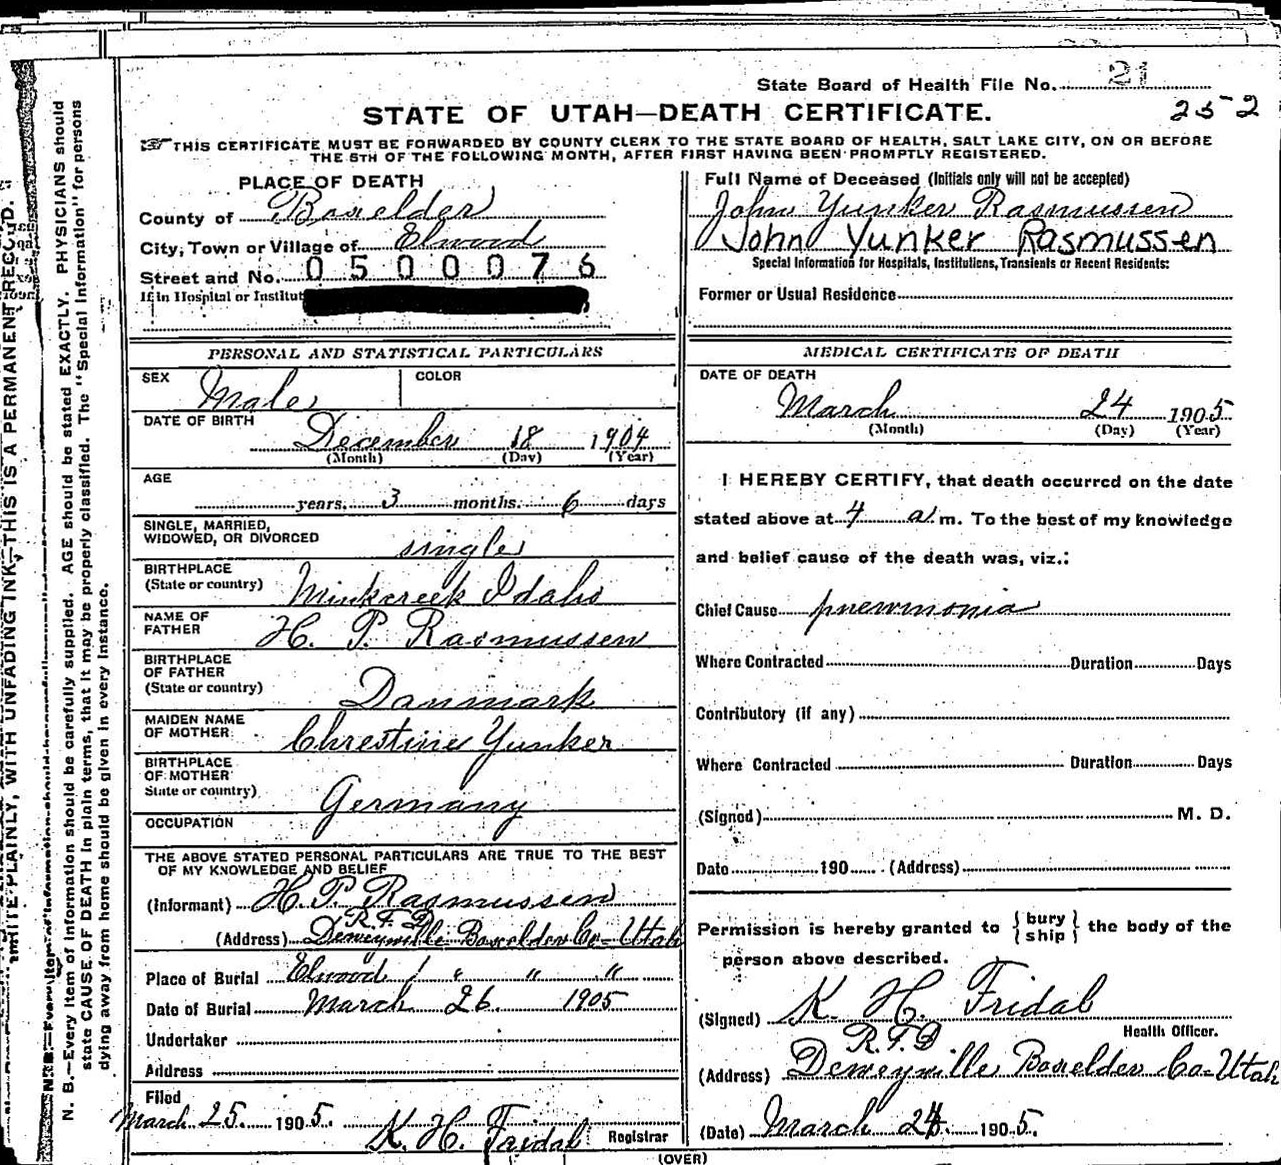 State Board of Health File No. 21
STATE OF UTAH—DEATH CERTIFICATE.
252
THIS CERTIFICATE MUST BE FORWARDED BY COUNTY CLERK TO THE STATE BOARD OF HEALTH, SALT LAKE CITY, ON OR BEFORE
THE 5TH OF THE FOLLOWING MONTH, AFTER FIRST HAVING BEEN PROMPTLY REGISTERED.
PLACE OF DEATH
County of Boxelder
City, Town or Village of Elwood
Street and No. 0500076
If in Hospital or Institut
Full Name of Deceased (Initials only will not be accepted)
John Yunker Rasmussen
John Yunker Rasmussen
Special Information for Hospitals, Institutions, Transients or Recent Residents:
Former or Usual Residence
PERSONAL AND STATISTICAL PARTICULARS
SEX Male COLOR
DATE OF BIRTH
December 18 1904
(Month) (Day) (Year)
AGE
years. 3 months. 6 days
SINGLE, MARRIED,
WIDOWED, OR DIVORCED single
BIRTHPLACE
(State or country) Minkcreek Idaho
NAME OF
FATHER H. P. Rasmussen
BIRTHPLACE
OF FATHER
(State or country) Danmark
MAIDEN NAME
OF MOTHER Chrestine Yunker
BIRTHPLACE
OF MOTHER
State or country) Germany
OCCUPATION
THE ABOVE STATED PERSONAL PARTICULARS ARE TRUE TO THE BEST
OF MY KNOWLEDGE AND BELIEF
(Informant) H. P. Rasmussen
R. F. D
(Address) Deweyville Boxelder Co-Utah
Place of Burial Elwood " " "
Date of Burial March 26 1905
Undertaker
Address
Filed
March 25. 1905. K. H. Fridal Registrar
MEDICAL CERTIFICATE OF DEATH
DATE OF DEATH
March 24 1905
(Month) (Day) (Year)
I HEREBY CERTIFY, that death occurred on the date
stated above at 4 a. m. To the best of my knowledge
and belief cause of the death was, viz.:
Chief Cause pnewmonia
Where Contracted Duration Days
Contributory (if any)
Where Contracted Duration Days
(Signed) M. D.
Date 190 (Address)
Permission is hereby granted to {bury
ship} the body of the
person above described.
(Signed) K. H. Fridal
Health Officer.
R. F. D.
(Address) Deweyville Boxelder Co-Utah
(Date) March 24 1905.
(OVER)
WRITE PLAINLY, WITH UNFADING INK—THIS IS A PERMANENT RECORD.
N. B.—Every item of information should be carefully supplied. AGE should be stated EXACTLY. PHYSICIANS should
state CAUSE OF DEATH in plain terms, that it may be properly classified. The "Special Information" for persons
dying away from home should be given in every instance.